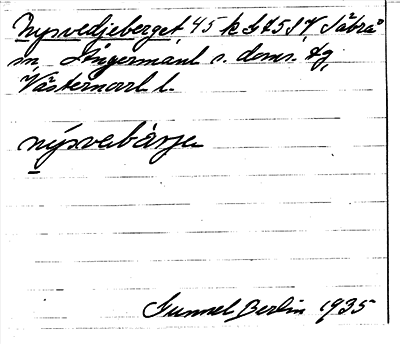 Nysvedjeberget, 45 k G 15 SV, Säbrå
sn, Ångermanl s. doms. tg,
Västernorrl l.
nýsvebärje
Gunnel Berlin 1935